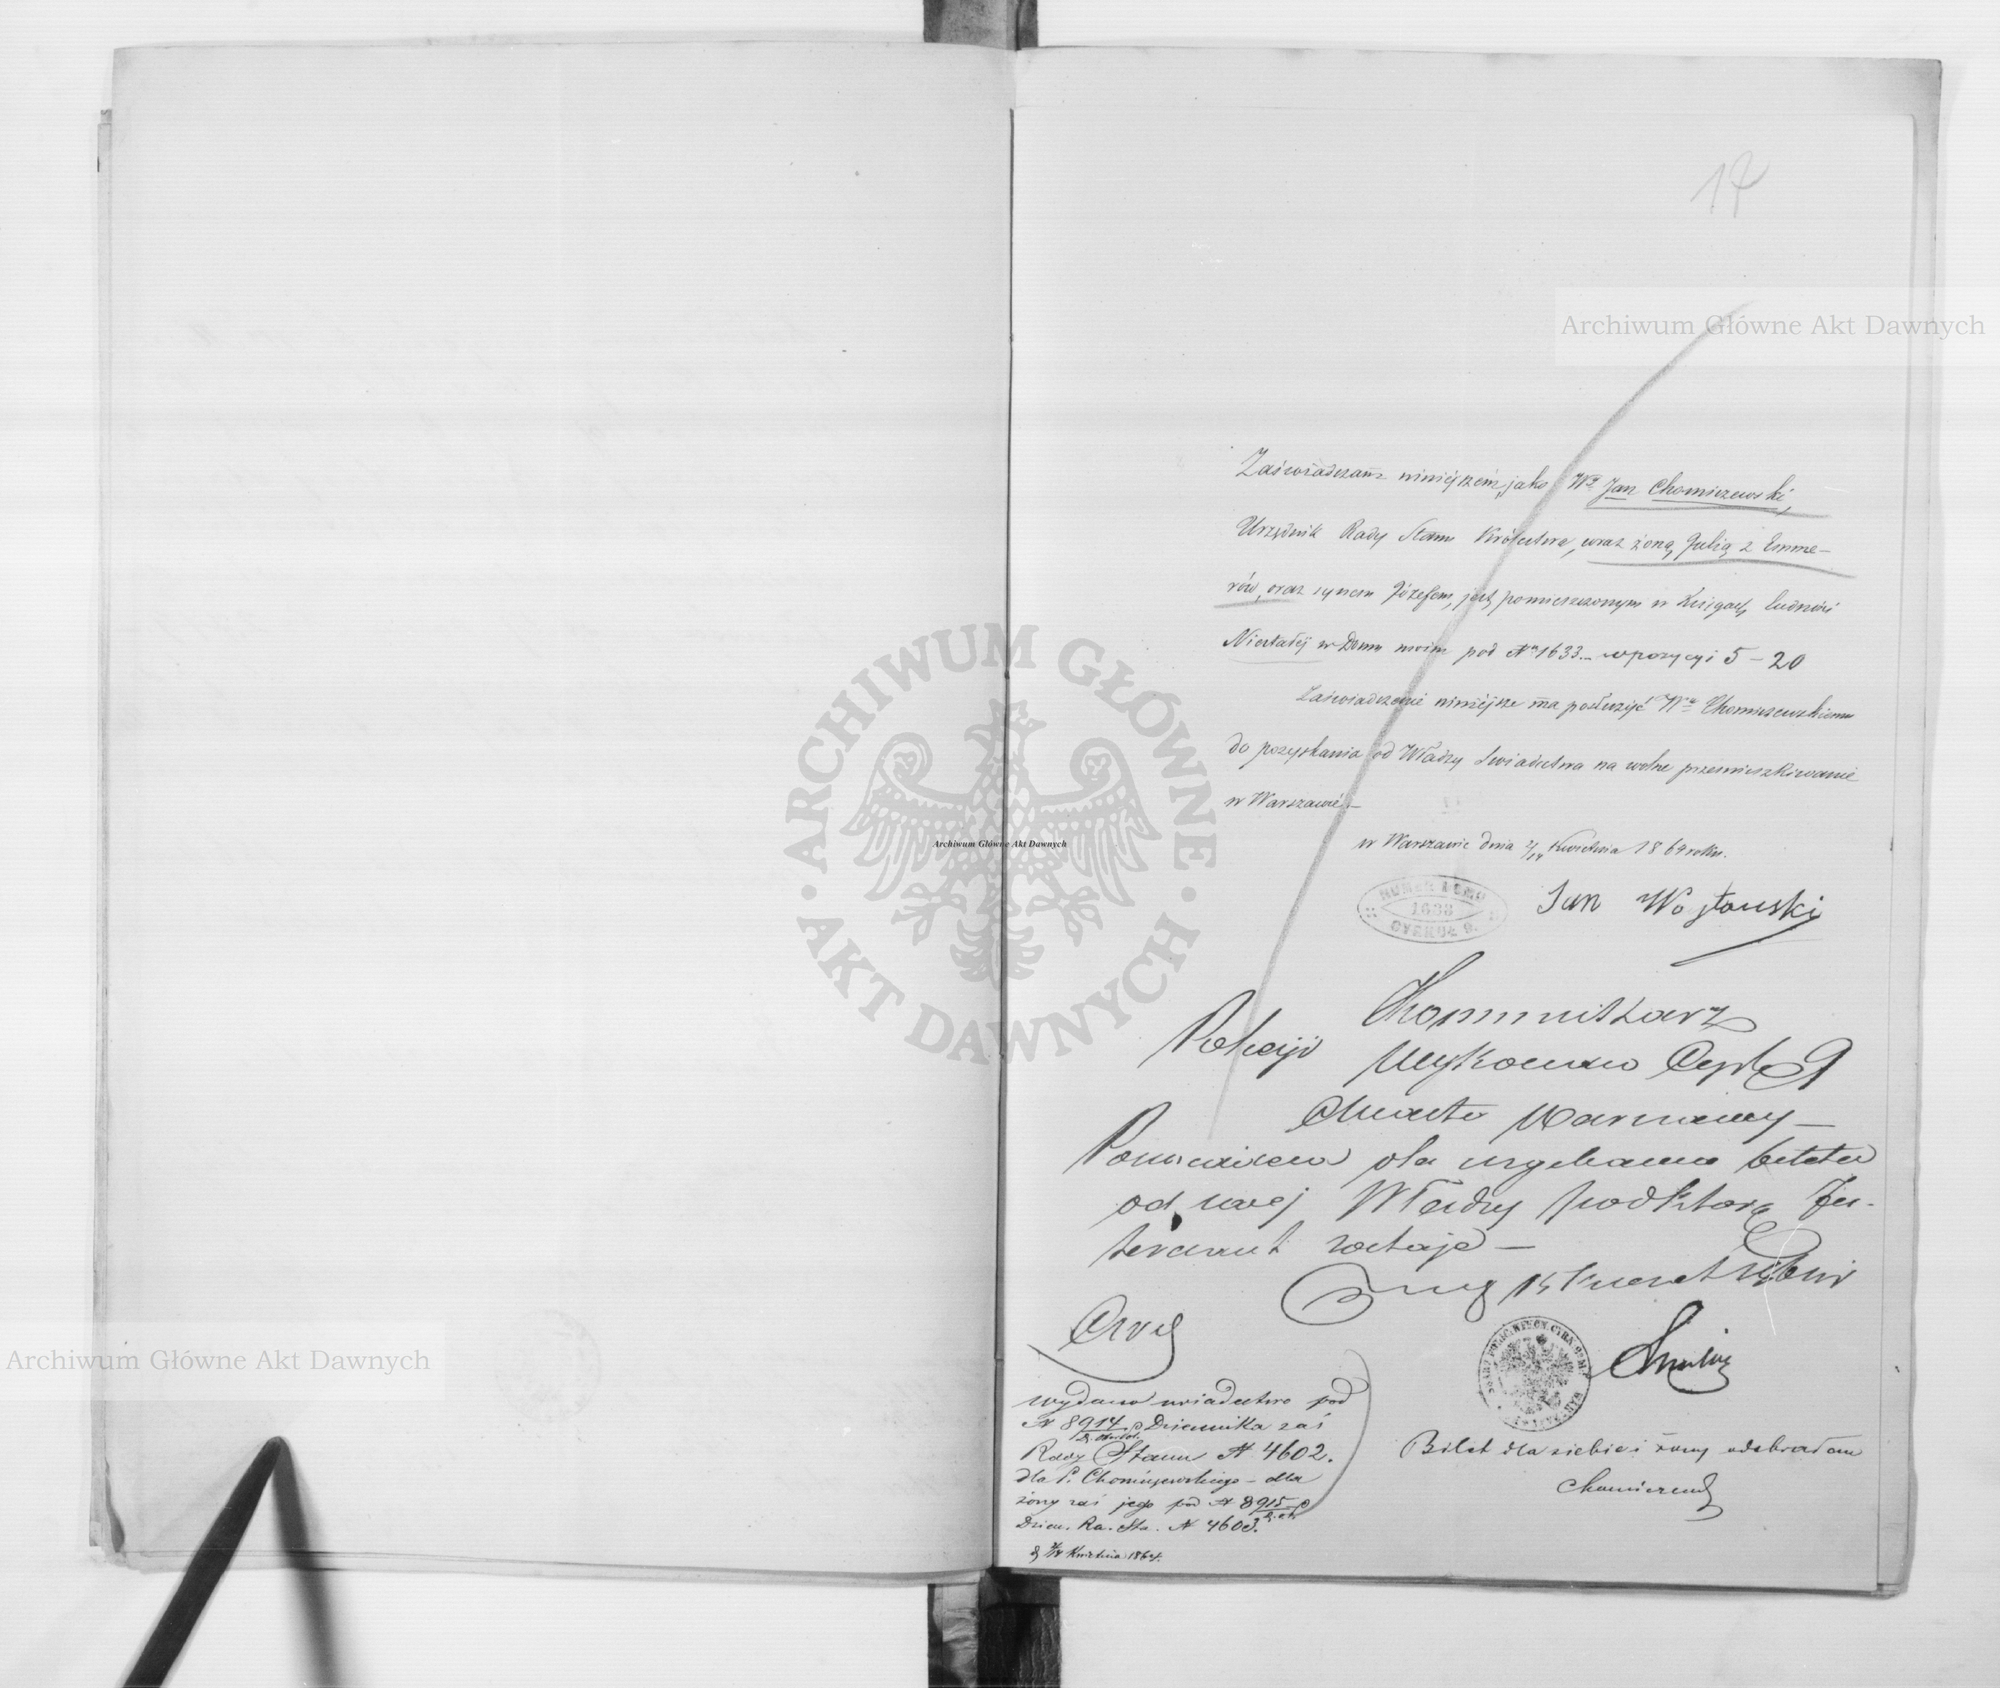 17
Zaświadczam niniejszém, jako Wy Jan Chomiczewski,
Urzędnik Rady Stanu Królestwa, wraz żoną Julią z Emme-
rów, oraz synem Józefem, jest pomieszczonym w Księgach ludności
Niestałej w Domu moim pod No 1633 w pozycyi 5-20
Zaświadczenie niniejsze ma posłużyć Wu Chomiczewskiemu
do pozyskania od Władzy Świadectwa na wolne przemieszkiwanie
w Warszawie.-
w Warszawie dnia 2/14 Kwietnia 1864 roku.
NUMER DOMU
1633
CYRKUŁ 9.
Jan
Kommissarz
Policyi Wykonaw Cyrk 9
Miasta Warszawy -
Poświadcza dla uzyskania biletu
od swej Władzy pod którą
zostaje -
wydano świadectwo pod
N 8914 Dziennika zaś
Rady Stanu N 4602.
dla P. Chomiczewskiego - dla
żony zaś jego pod N 8915
Dzien. Ra. Sta. N 4603.
Kwietnia 1864.
Bilet dla siebie i żony odebrałem
Chomiczewski
Archiwum Główne Akt Dawnych
Archiwum Główne Akt Dawnych
Archiwum Główne Akt Dawnych
ARCHIWUM GŁÓWNE · AKT DAWNYCH ·